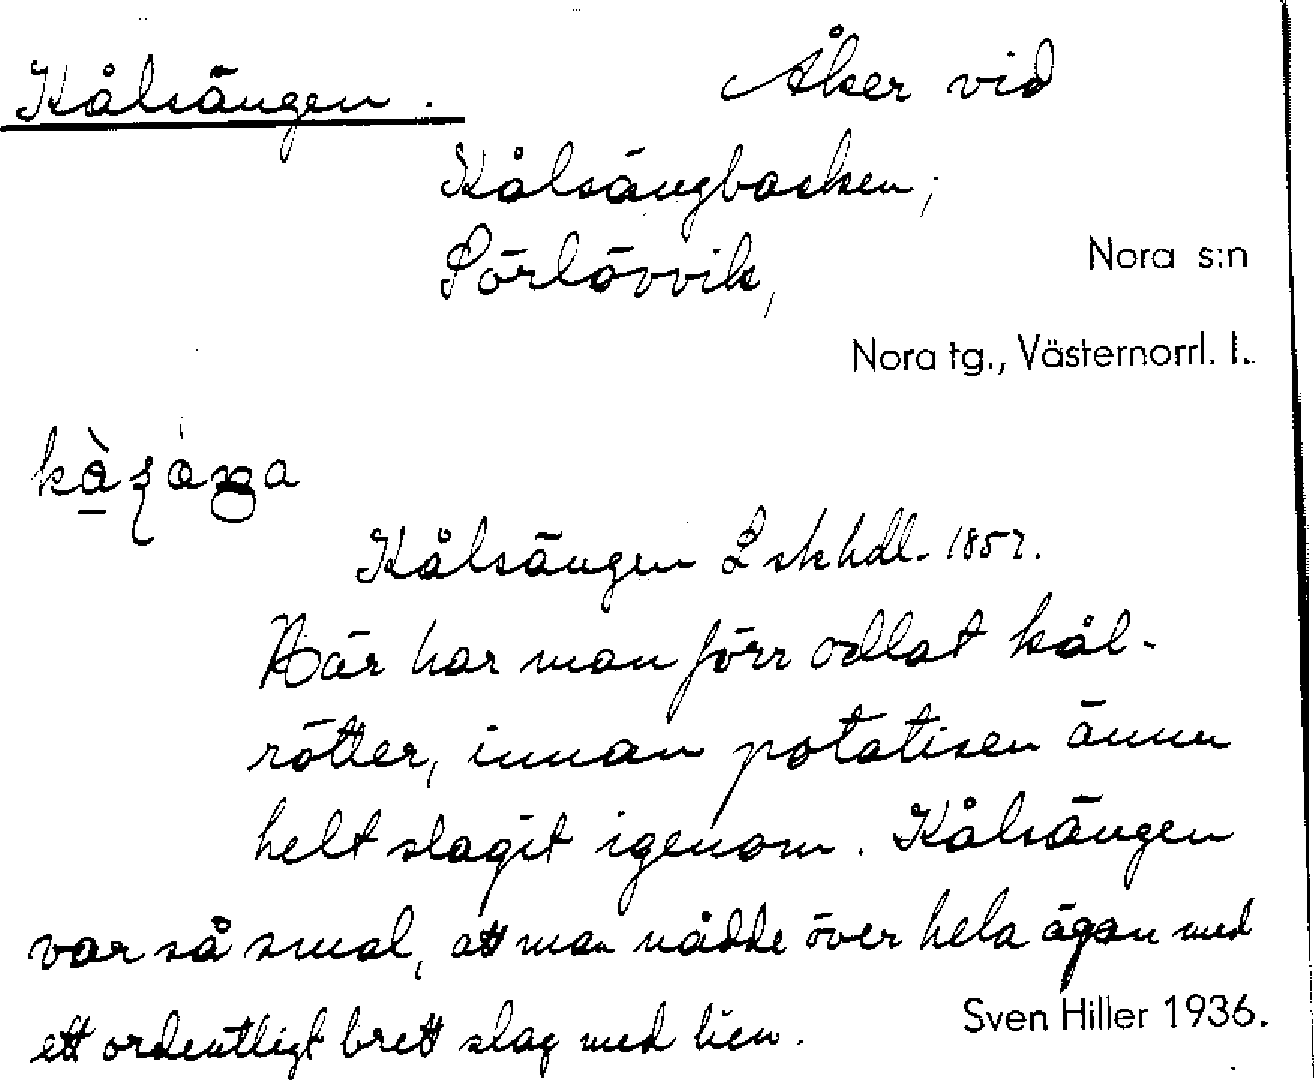 Kålsängen.
Åker vid
Kålsängbacken,
Sörlövvik,
Nora s:n
Nora tg., Västernorrl. l.
Kålsängen L skhdl. 1857.
Här har man förr odlat kål-
rötter, innan potatisen ännu
helt slagit igenom. Kålsängen
var så smal, att man nådde över hela ägan med
ett ordentligt brett slag med lien.
Sven Hiller 1936.